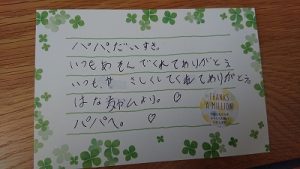 パパ、だいすき。
いつもあそんでくれてありがとう
いつも、やさしくしてくれてありがとう
はなちゃんより。♡
パパへ。♡
THANKS
A MILLION